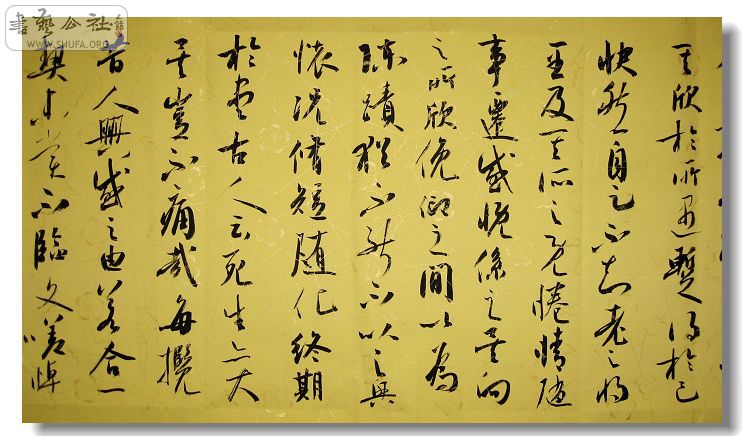 書藝公社
WWW.SHUFA.ORG
其欣於所遇暫得於己
快然自足不知老之將
至及其所之既惓情隨
事遷感慨係之矣向
之所欣俛仰之間以為
陳蹟猶不能不以之興
懷況脩短随化終期
於盡古人云死生亦大
矣豈不痛哉每攬
昔人興感之由若合一
契未嘗不臨文嗟悼